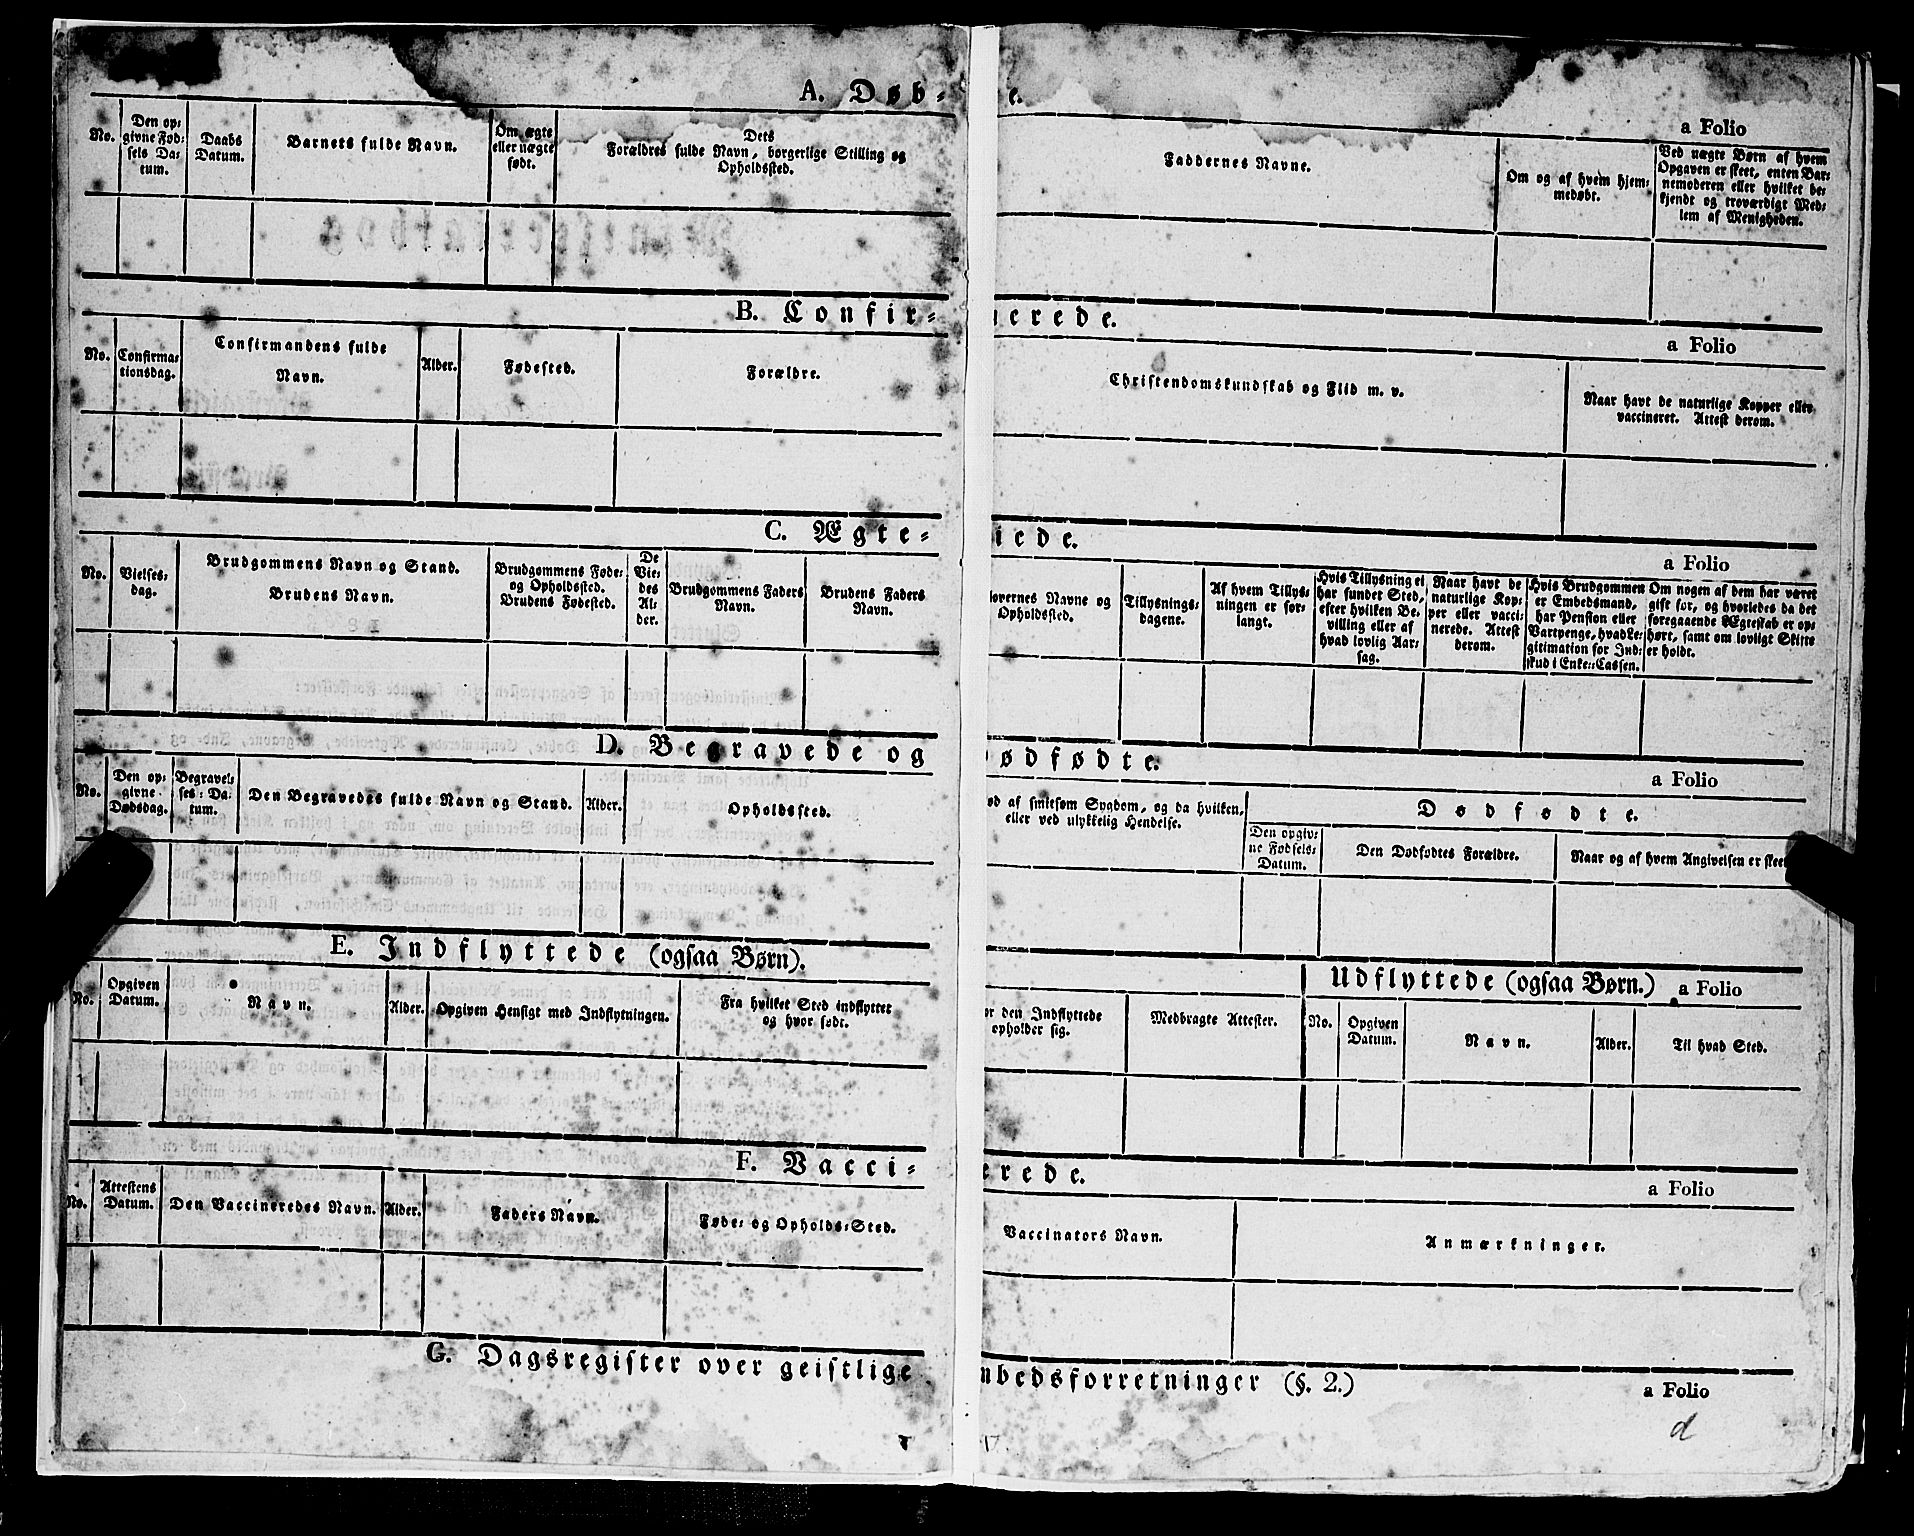 A. Døb-
e.
a Folio
No.
Den op-
givne Fød-
sels Da-
tum.
Daabs
Datum.
Barnets fulde Navn.
Om ægte
eller uægte
født.
Dets
Forældres fulde Navn, borgerlige Stilling og
Opholdssted.
Faddernes Navne.
Om og af hvem hjem-
medøbt.
Ved uægte Børn af hvem
Opgaven er skeet, enten Bar-
nemoderen eller hvilket be-
kjendt og troværdigt Med-
lem af Menigheden.
B. Confir-
erede.
a Folio
No.
Confirma-
tionsdag.
Confirmandens fulde
Navn.
Alder.
Fødested.
Forældre.
Christendomskundskab og Flid m. v.
Naar havt de naturlige Kopper eller
vaccineret. Attest derom.
C. Ægte-
iede.
a Folio
No.
Vielses-
dag.
Brudgommens Navn og Stand.
Brudens Navn.
Brudgommens Føde-
og Opholdssted.
Brudens Fødested.
De
Vie-
des
Al-
der.
Brudgommens Faders
Navn.
Brudens Faders
Navn.
lovernes Navne og
Opholdssted.
Tillysnings-
dagene.
Af hvem Tillys-
ningen er for-
langt.
Hvis Tillysning ei
har fundet Sted,
efter hvilken Be-
villing eller af
hvad lovlig Aar-
sag.
Naar havt de
naturlige Kop-
per eller vacci-
nerede. Attest
derom.
Hvis Brudgommen
er Embedsmand,
har Pension eller
Vartpenge, hvad Le-
gitimation for Ind-
skud i Enke-Cassen.
Om nogen af dem har været
gift før, og hvorledes da det
foregaaende Ægteskab er op-
hørt, samt om lovligt Skifte
er holdt.
D. Begravede og
ødfødte.
a Folio
No.
Den op-
givne
Dødsdag.
Begravel-
ses-Da-
tum.
Den Begravedes fulde Navn og Stand.
Alder.
Opholdssted.
ød af smitsom Sygdom, og da hvilken,
eller ved ulykkelig Hendelse.
Dødfødte.
Den opgiv-
ne Fødsels-
Datum.
Den Dødfødtes Forældre.
Naar og af hvem Angivelsen er skeet
E. Indflyttede (ogsaa Børn).
Udflyttede (ogsaa Børn.)
a Folio
No.
Opgiven
Datum.
Navn.
Alder.
Opgiven Hensigt med Indflytningen.
Fra hvilket Sted indflyttet
og hvor født.
or den Indflyttede
opholder sig.
Medbragte Attester.
No.
Opgiven
Datum.
Navn.
Alder.
Til hvad Sted.
F. Vacci-
erede.
a Folio
No.
Attestens
Datum.
Den Vaccineredes Navn.
Alder.
Faders Navn.
Føde- og Opholds-Sted.
Vaccinators Navn.
Anmærkninger.
G. Dagsregister over geistlige
mbedsforretninger (§. 2.)
a Folio
d